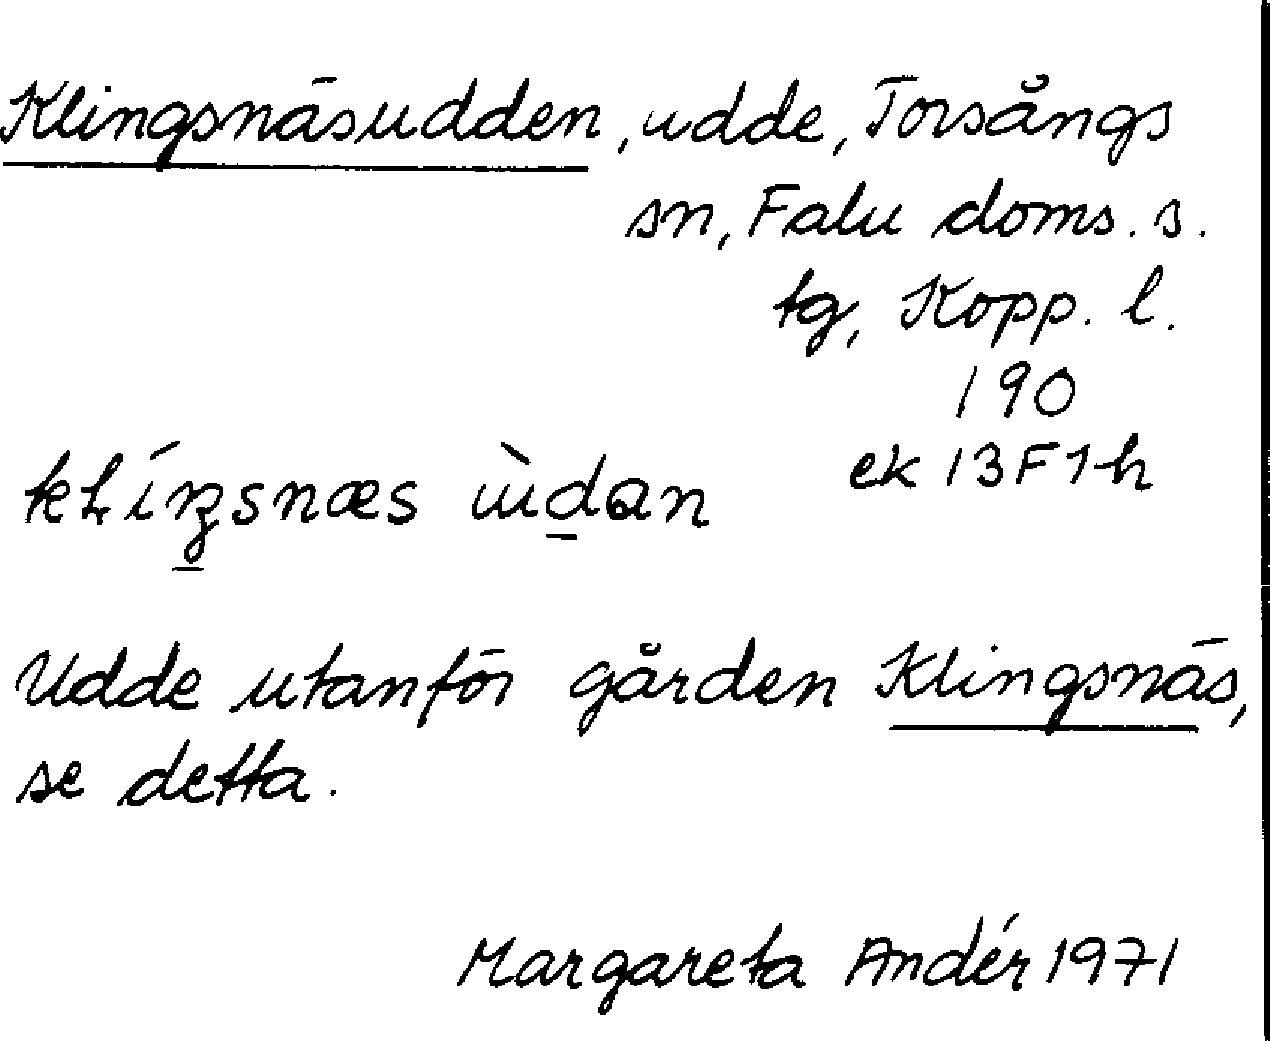 Klingsnäsudden, udde, Torsångs
sn, Falu doms. s.
tg, Kopp. l.
190
ek 13F1h
Udde utanför gården Klingsnäs,
se detta.
Margareta Andér 1971